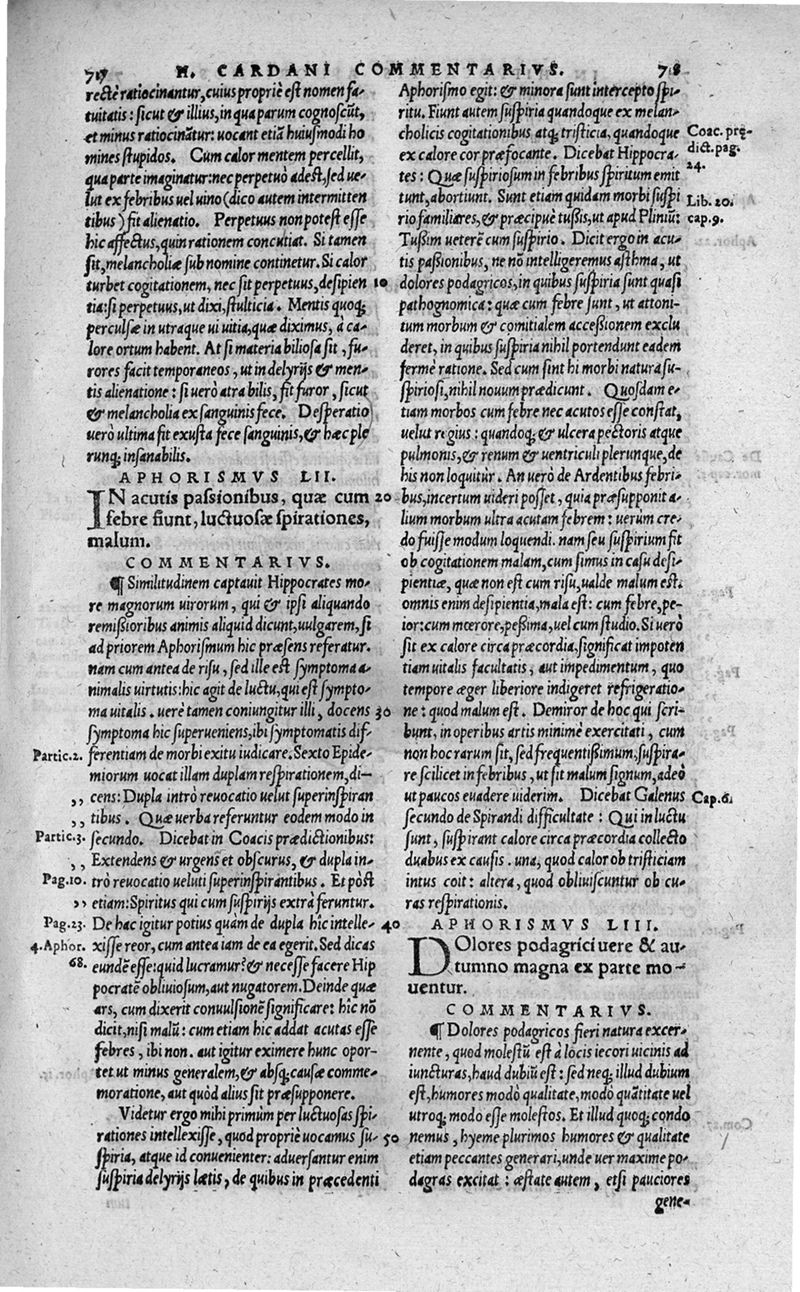 717 H. CARDANI COMMENTARIVS. 718
rectè ratiocinantur, cuius propriè est nomen fa-
tuitatis: sicut & illius, in qua parum cognoscūt,
et minus ratiocinātur: uocant etiā huiusmodi ho
mines stupidos. Cum calor mentem percellit,
qua parte imaginatur: nec perpetuò adest, sed ue-
lut ex febribus uel uino (dico autem intermitten
tibus) fit alienatio. Perpetuus non potest esse
hic affectus, quin rationem concutiat. Si tamen
sit, melancholiæ sub nomine continetur. Si calor
turbet cogitationem, nec sit perpetuus, desipien 10
tia: si perpetuus, ut dixi, stulticia. Mentis quoq;
perculsæ in utraque ui uitia, quæ diximus, à ca-
lore ortum habent. At si materia biliosa sit, fu-
rores facit temporaneos, ut in delyrijs & men-
tis alienatione: si uerò atra bilis, fit furor, sicut
& melancholia ex sanguinis fece. Desperatio
uerò ultima fit exusta fece sanguinis, & hæc ple
runq; insanabilis.
APHORISMVS LII.
IN acutis passionibus, quæ cum 20
febre fiunt, luctuosæ spirationes,
malum.
COMMENTARIVS.
¶ Similitudinem captauit Hippocrates mo-
re magnorum uirorum, qui & ipsi aliquando
remissioribus animis aliquid dicunt, uulgarem, si
ad priorem Aphorismum hic præsens referatur.
nam cum antea de risu, sed ille est symptoma a-
nimalis uirtutis: hic agit de luctu, qui est sympto-
ma uitalis. uerè tamen coniungitur illi, docens 30
symptoma hic superueniens, ibi symptomatis dif-
Partic. 2. ferentiam de morbi exitu iudicare. Sexto Epide-
miorum uocat illam duplam respirationem, di-
,, cens: Dupla intrò reuocatio uelut superinspiran
,, tibus. Quæ uerba referuntur eodem modo in
Partic. 3. secundo. Dicebat in Coacis prædictionibus:
,, Extendens & urgens et obscurus, & dupla in-
Pag. 10. trò reuocatio ueluti superinspirantibus. Et pòst
,, etiam: Spiritus qui cum suspirijs extrà feruntur.
Pag. 23. De hac igitur potius quàm de dupla hîc intelle- 40
4. Aphor. xisse reor, cum antea iam de ea egerit. Sed dicas
68. eundē esse: quid lucramur? & necesse facere Hip
pocratē obliuiosum, aut nugatorem. Deinde quæ
ars, cum dixerit conuulsionē significare: hîc nō
dicit, nisi malū: cum etiam hic addat acutas esse
febres, ibi non. aut igitur eximere hunc opor-
tet ut minus generalem, & absq; causæ comme-
moratione, aut quòd alius sit præsupponere.
Videtur ergo mihi primum per luctuosas spi-
rationes intellexisse, quod propriè uocamus su- 50
spiria, atque id conuenienter: aduersantur enim
suspiria delyrijs lætis, de quibus in præcedenti
Aphorismo egit: & minora sunt intercepto spi-
ritu. Fiunt autem suspiria quandoque ex melan-
cholicis cogitationibus atq; tristicia, quandoque Coac. prę-
ex calore cor præfocante. Dicebat Hippocra- dict. pag.
tes: Quæ suspiriosum in febribus spiritum emit 24.
tunt, abortiunt. Sunt etiam quidam morbi suspi Lib. 20.
rio familiares, & præcipuè tußis, ut apud Pliniū: cap. 9.
Tussim ueterē cum suspirio. Dicit ergo in acu-
tis passionibus, ne nō intelligeremus asthma, ut
dolores podagricos, in quibus suspiria sunt quasi
pathognomica: quæ cum febre sunt, ut attoni-
tum morbum & comitialem accessionem exclu
deret, in quibus suspiria nihil portendunt eadem
fermè ratione. Sed cum sint hi morbi natura su-
spiriosi, nihil nouum prædicunt. Quosdam e-
tiam morbos cum febre nec acutos esse constat,
uelut regius: quandoq; & ulcera pectoris atque
pulmonis, & renum & uentriculi plerunque, de
his non loquitur. An uerò de Ardentibus febri-
bus, incertum uideri posset, quia præsupponit a-
lium morbum ultra acutam febrem: uerum cre-
do fuisse modum loquendi. nam seu suspirium fit
ob cogitationem malam, cum simus in casu desi-
pientiæ, quæ non est cum risu, ualde malum est.
omnis enim desipientia, mala est: cum febre, pe-
ior: cum mœrore, peßima, uel cum studio. Si uerò
sit ex calore circa præcordia, significat impoten
tiam uitalis facultatis, aut impedimentum, quo
tempore æger liberiore indigeret refrigeratio-
ne: quod malum est. Demiror de hoc qui scri-
bunt, in operibus artis minimè exercitati, cum
non hoc rarum sit, sed frequentißimum, suspira-
re scilicet in febribus, ut sit malum signum, adeò
ut paucos euadere uiderim. Dicebat Galenus Cap. 6.
secundo de Spirandi difficultate: Qui in luctu
sunt, suspirant calore circa præcordia collecto
duabus ex causis. una, quod calor ob tristiciam
intus coit: altera, quod obliuiscuntur ob cu-
ras respirationis.
APHORISMVS LIII.
DOlores podagrici uere & au-
tumno magna ex parte mo-
uentur.
COMMENTARIVS.
¶ Dolores podagricos fieri natura excer-
nente, quod molestū est à locis iecori uicinis ad
iuncturas, haud dubiū est: sed neq; illud dubium
est, humores modò qualitate, modò quātitate uel
utroq; modo esse molestos. Et illud quoq; condo
nemus, hyeme plurimos humores & qualitate
etiam peccantes generari, unde uer maxime po-
dagras excitat: æstate autem, etsi pauciores
gene-